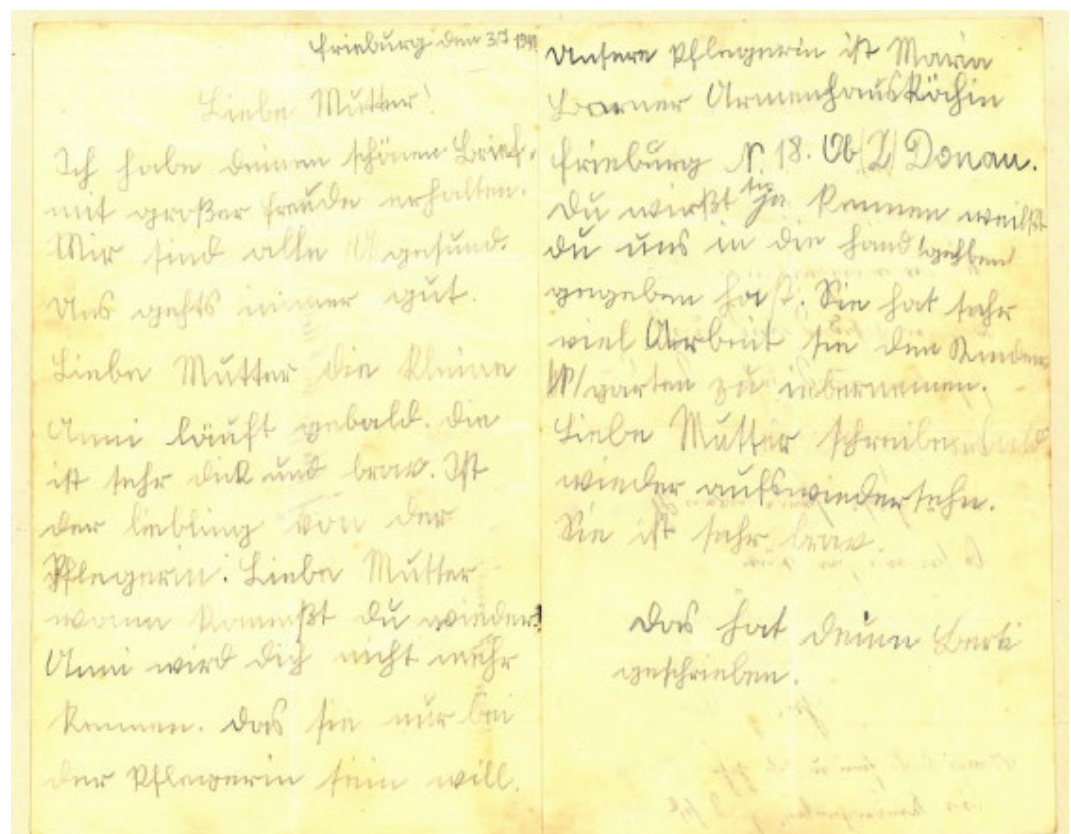 Frieburg den 3.7 194
Liebe Mutter!
Ich habe deinen schönen Brief.
mit großer Freude erhalten.
Mir sind alle gesund.
Uns gehts immer gut.
Liebe Mutter die kleine
Anni läuft gebald. die
ist sehr dick und brav. Ist
der liebling von der
Pflegerin. Liebe Mutter
wann kommßt du wieder?
Anni wird dich nicht mehr
kennen. das sie nur bei
der Pflegerin sein will.
Unsere Pflegerin ist Maria
Armenhausköchin
Frieburg N. 18. Ob Donau.
du wirßt sie ja kennen weilßt
du uns in die hand
gegeben haßt. Sie hat sehr
viel Arbeit sie den Kinder
garten zu übernemen.
Liebe Mutter schreibe
wieder aufswiedersehn.
Sie ist sehr brav.
das hat deine Berti
geschrieben.